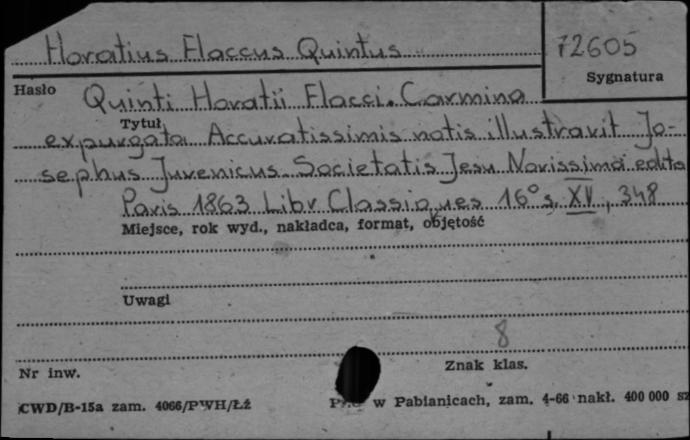 Horatius Flaccus Quintus
72605
Hasło
Sygnatura
Quinti Horatii Flacci. Carmina
Tytuł
expurgata Accuratissimis notis illustravit Jo-
sephus Juvenicus Societatis Jesu Novissima edita
Paris 1863 Libr Classiques 16° s. XV, 348
Miejsce, rok wyd., nakładca, format, objętość
Uwagi
8
Nr inw.
Znak klas.
CWD/B-15a zam. 4066/PWH/Łż
w Pabianicach, zam. 4-66 nakł. 400 000 sz